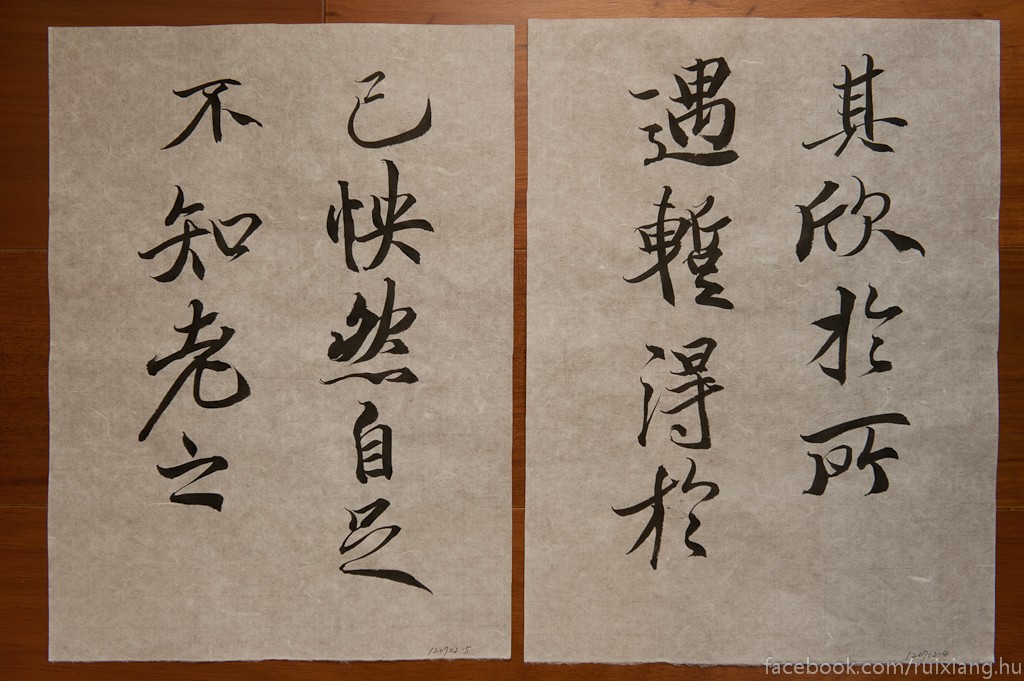 其欣於所
遇暫得於
已怏然自足
不知老之
120702-4
120702-5
facebook.com/ruixiang.hu